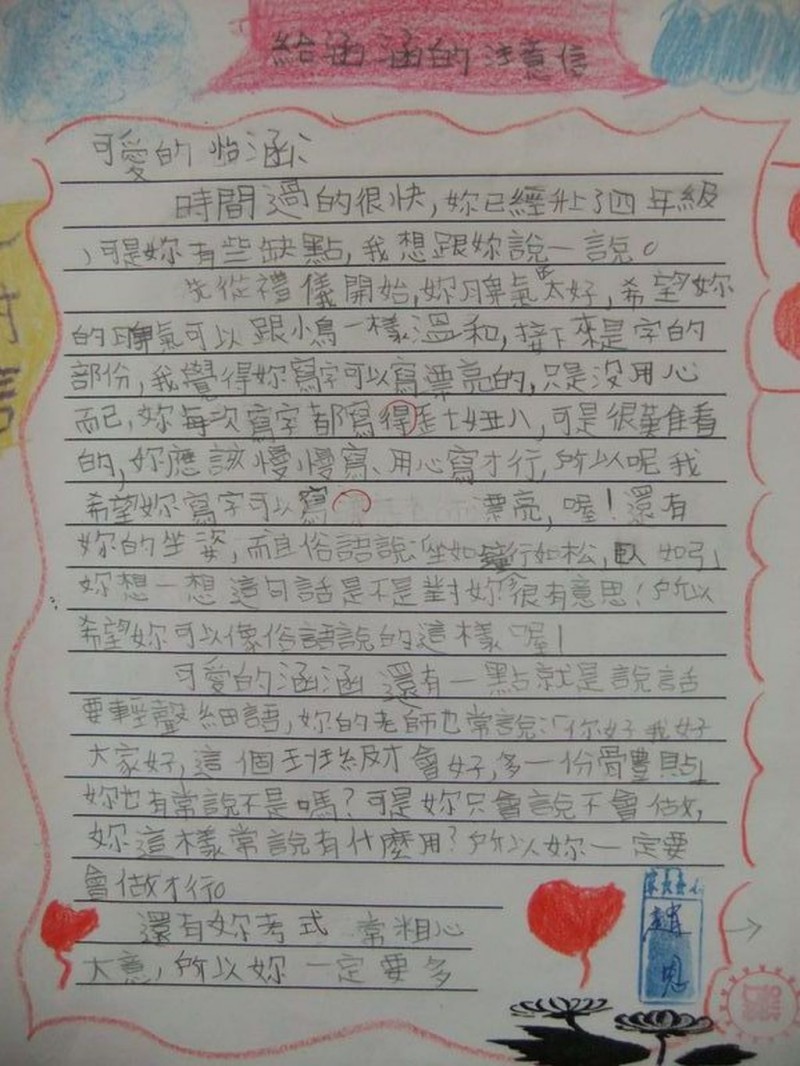 給涵涵的注意信
可愛的怡涵:
時間過的很快,妳已經升上了四年級
,可是妳有些缺點,我想跟妳說一說。
先從禮儀開始,妳脾氣太好,希望妳
的脾氣可以跟小鳥一樣溫和,接下來是字的
部份,我覺得妳寫字可以寫漂亮的,只是沒用心
而已,妳每次寫字都寫得歪七扭八,可是很難看
的,妳應該慢慢寫、用心寫才行,所以呢我
希望妳寫字可以寫漂亮,喔!還有
妳的坐姿,而且俗語說:「坐如鐘行如松,臥如弓」
妳想一想這句話是不是對妳很有意思!所以
希望妳可以像俗語說的這樣喔!
可愛的涵涵還有一點就是說話
要輕聲細語,妳的老師也常說:「你好我好
大家好,這個班級才會好,多一份體貼」
妳也有常說不是嗎?可是妳只會說不會做,
妳這樣常說有什麼用?所以妳一定要
會做才行。
還有妳考式常粗心
大意,所以妳一定要多